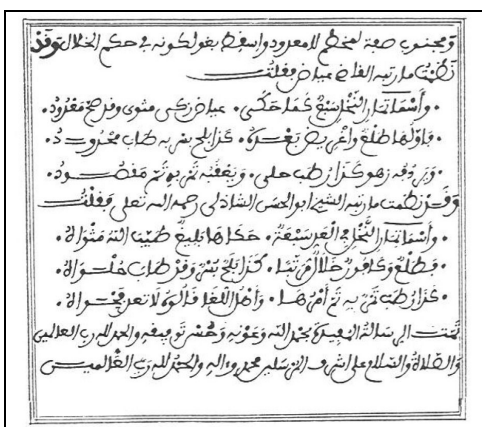 صفة لمخطم لا معرود في حكم الخلال وقد
نظمت ما رتبه القاضي عياض فقلت
وأسما ثمار النخل سبع كما حكى . عياض زكى مثوى وقد صح معدود .
فاولها طلع واغريض بعده . كذا بلح بسر به طاب
ويردفه زهو كذا رطب حلى . ويعقبه تمر به تم مقصود .
وقد نظمت ما رتبه الشيخ ابو الحسن الشاذلى رحمه الله تعلى فقلت
وأسما ثمار النخل في العد سبعة . حكاها بليغ طيب الله مثواه .
فطلع وكافور خلال مرتبا . كذا بلح بسر وقد طاب حلواه .
كذا رطب تمر به تم أمرها . وأهل اللغا لا تعد فحواه .
تمت الرسالة المفيدة بحمد الله وعونه وحسن توفيقه والحمد لله رب العالمين
والصلاة والسلام على اشرف المرسلين محمد وءاله والحمد لله رب العالمين